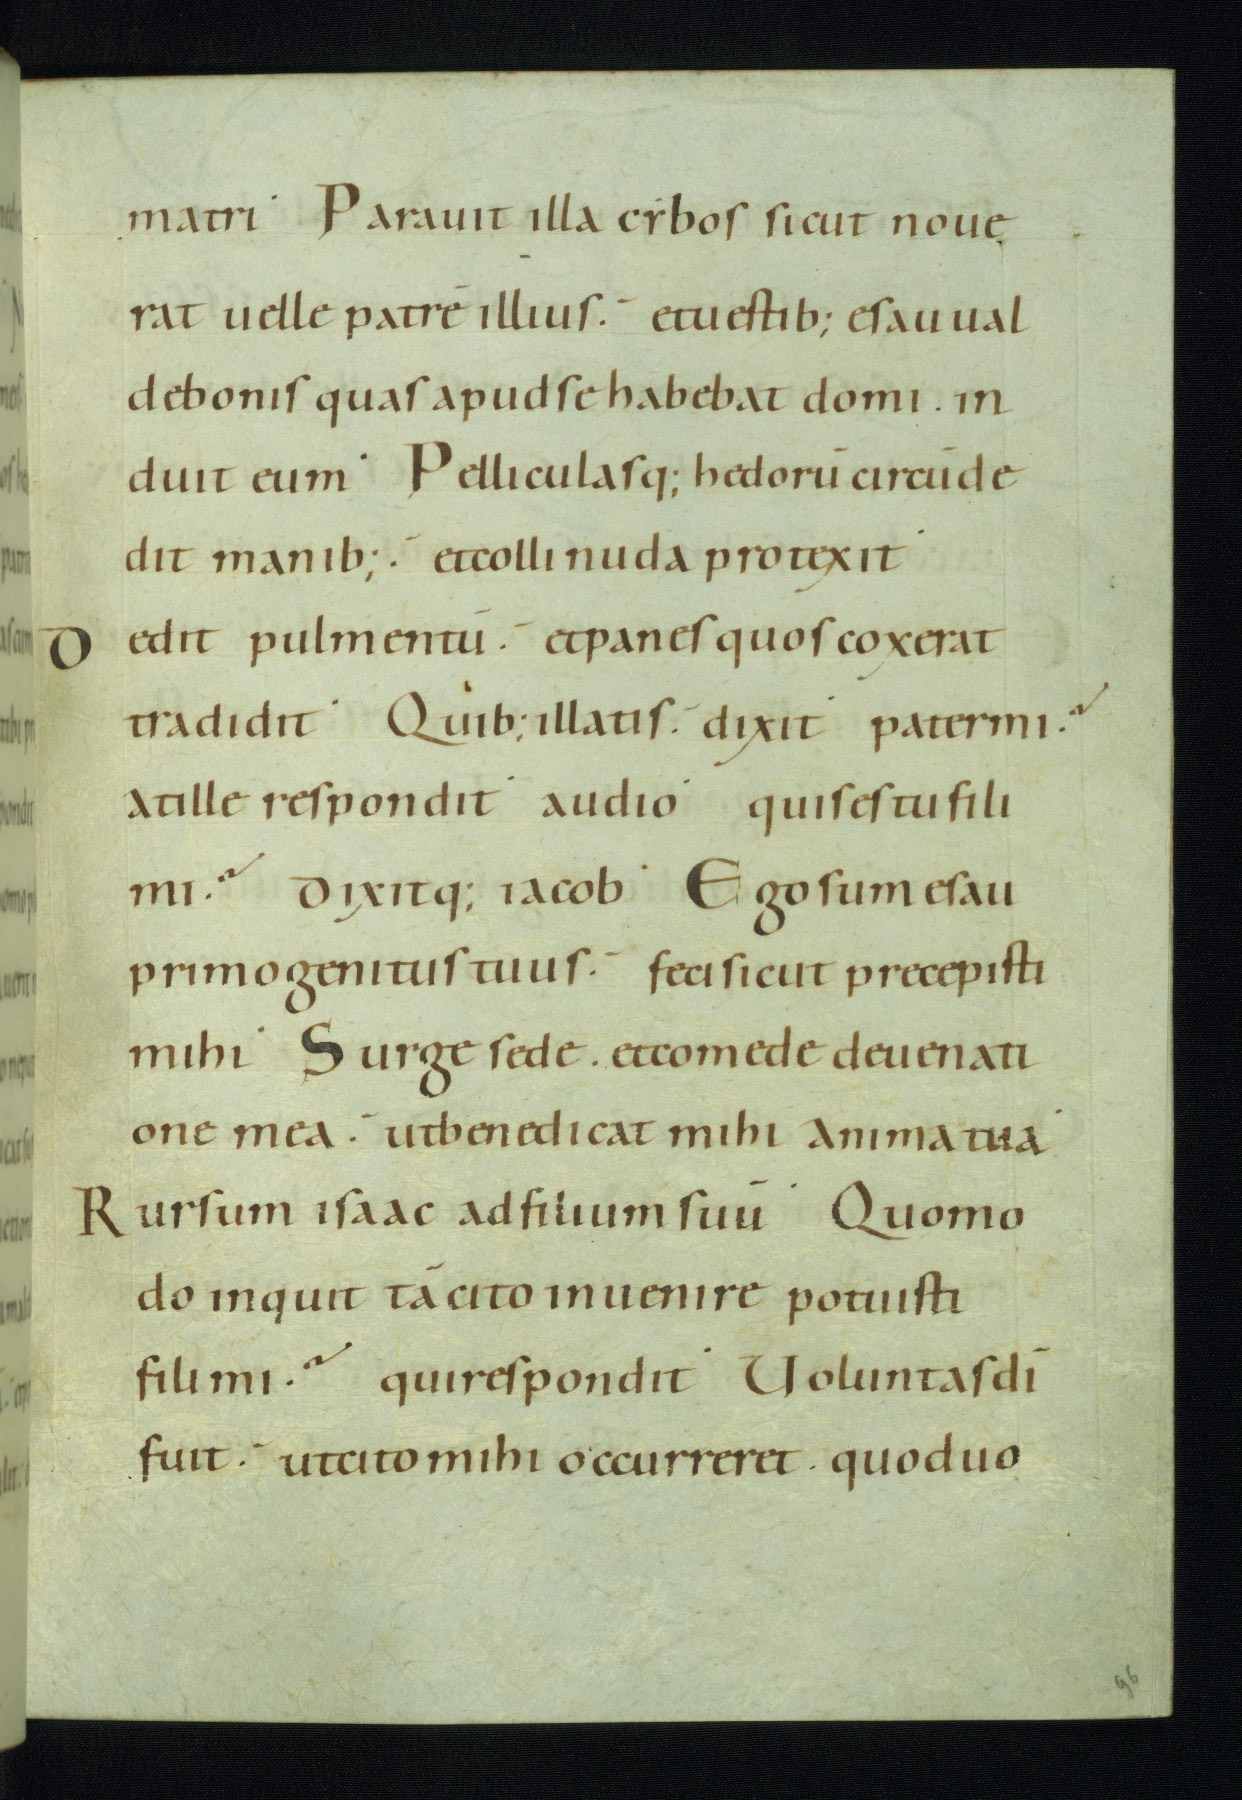 matri· Parauit illa cẏbos sicut noue
rat uelle patrē illius. etuestib; esau ual
debonis quas apud se habebat domi. in
duit eum· Pelliculasq; hedorū circūde
dit manib;. etcolli nuda protexit·
Dedit pulmentū. etpanes quos coxerat
tradidit· Quib; illatis. dixit· pater mi?
atille respondit· audio· quis es tu fili
mi? Dixitq; iacob· Ego sum esau
primogenitus tuus. feci sicut precepisti
mihi· Surge sede. etcomede deuenati
one mea. utbenedicat mihi anima tua·
Rursum isaac ad filium suū· Quomo
do inquit tā cito inuenire potuisti
fili mi? qui respondit· Uoluntas dī
fuit. utcito mihi occurreret. quod uo
96